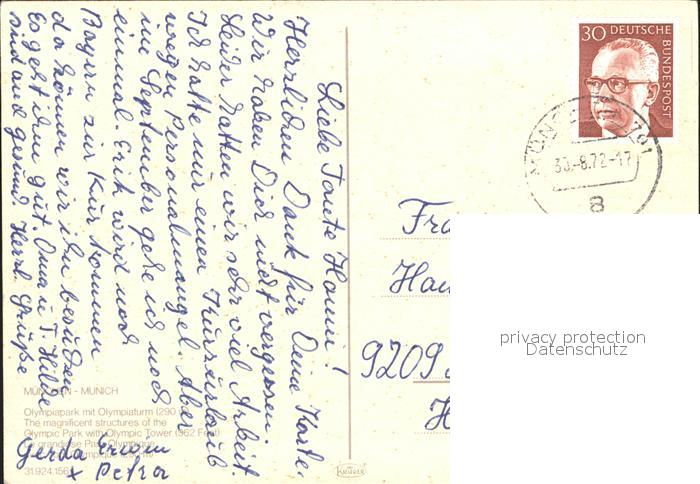 Liebe Tante Hanni!
Herzlichen Dank für Deine Karte.
Wir haben Dich nicht vergessen.
Leider hatten wir sehr viel Arbeit.
Ich hatte nur einen Kurzurlaub
wegen Personalmangel. Aber
im September gehe ich noch
einmal. Erik wird nach
Bayern zur Kur kommen
da können wir ihn besuchen.
Es geht ihm gut. Oma u. T. Hilde
sind auch gesund. Herzl. Grüße
Gerda Erwin
+ Petra
30 DEUTSCHE
BUNDESPOST
30.-8.72-17
8
Fra
Hau
9209
H
privacy protection
Datenschutz
MÜNCHEN - MUNICH
Olympiapark mit Olympiaturm (290
The magnificent structures of the
Olympic Park with Olympic Tower (962 Feet)
31.924.156
KRÜGER